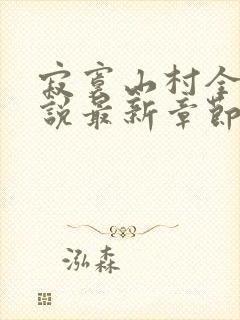 寂寞山村全
說最新章節
泓森